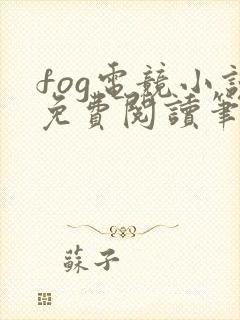 fog電競小說
免費閱讀筆
蘇子